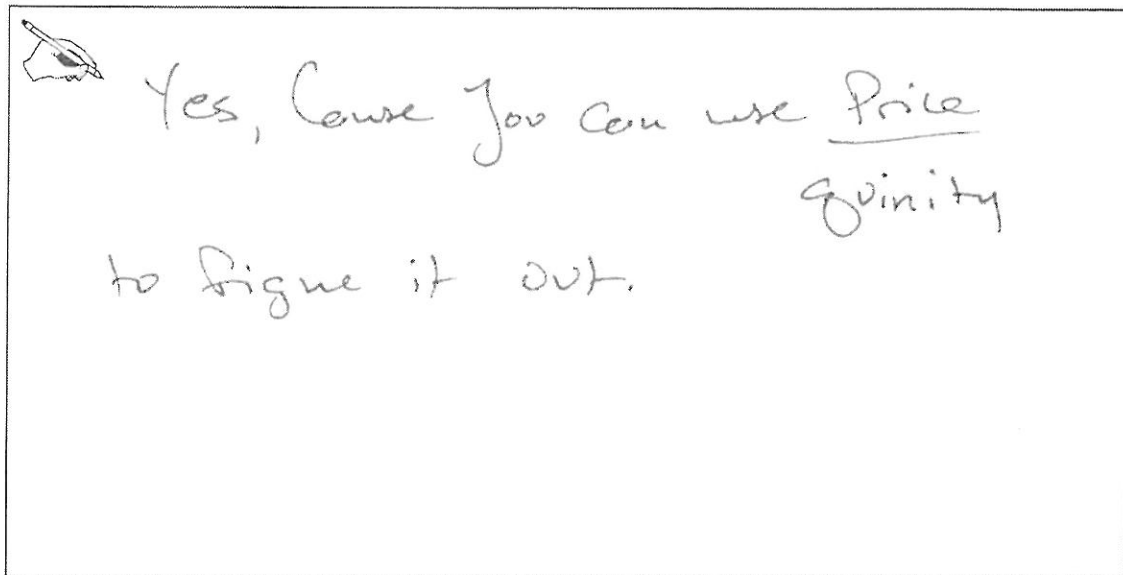 Yes, Cause you can use Price
quinity
to figne it out.